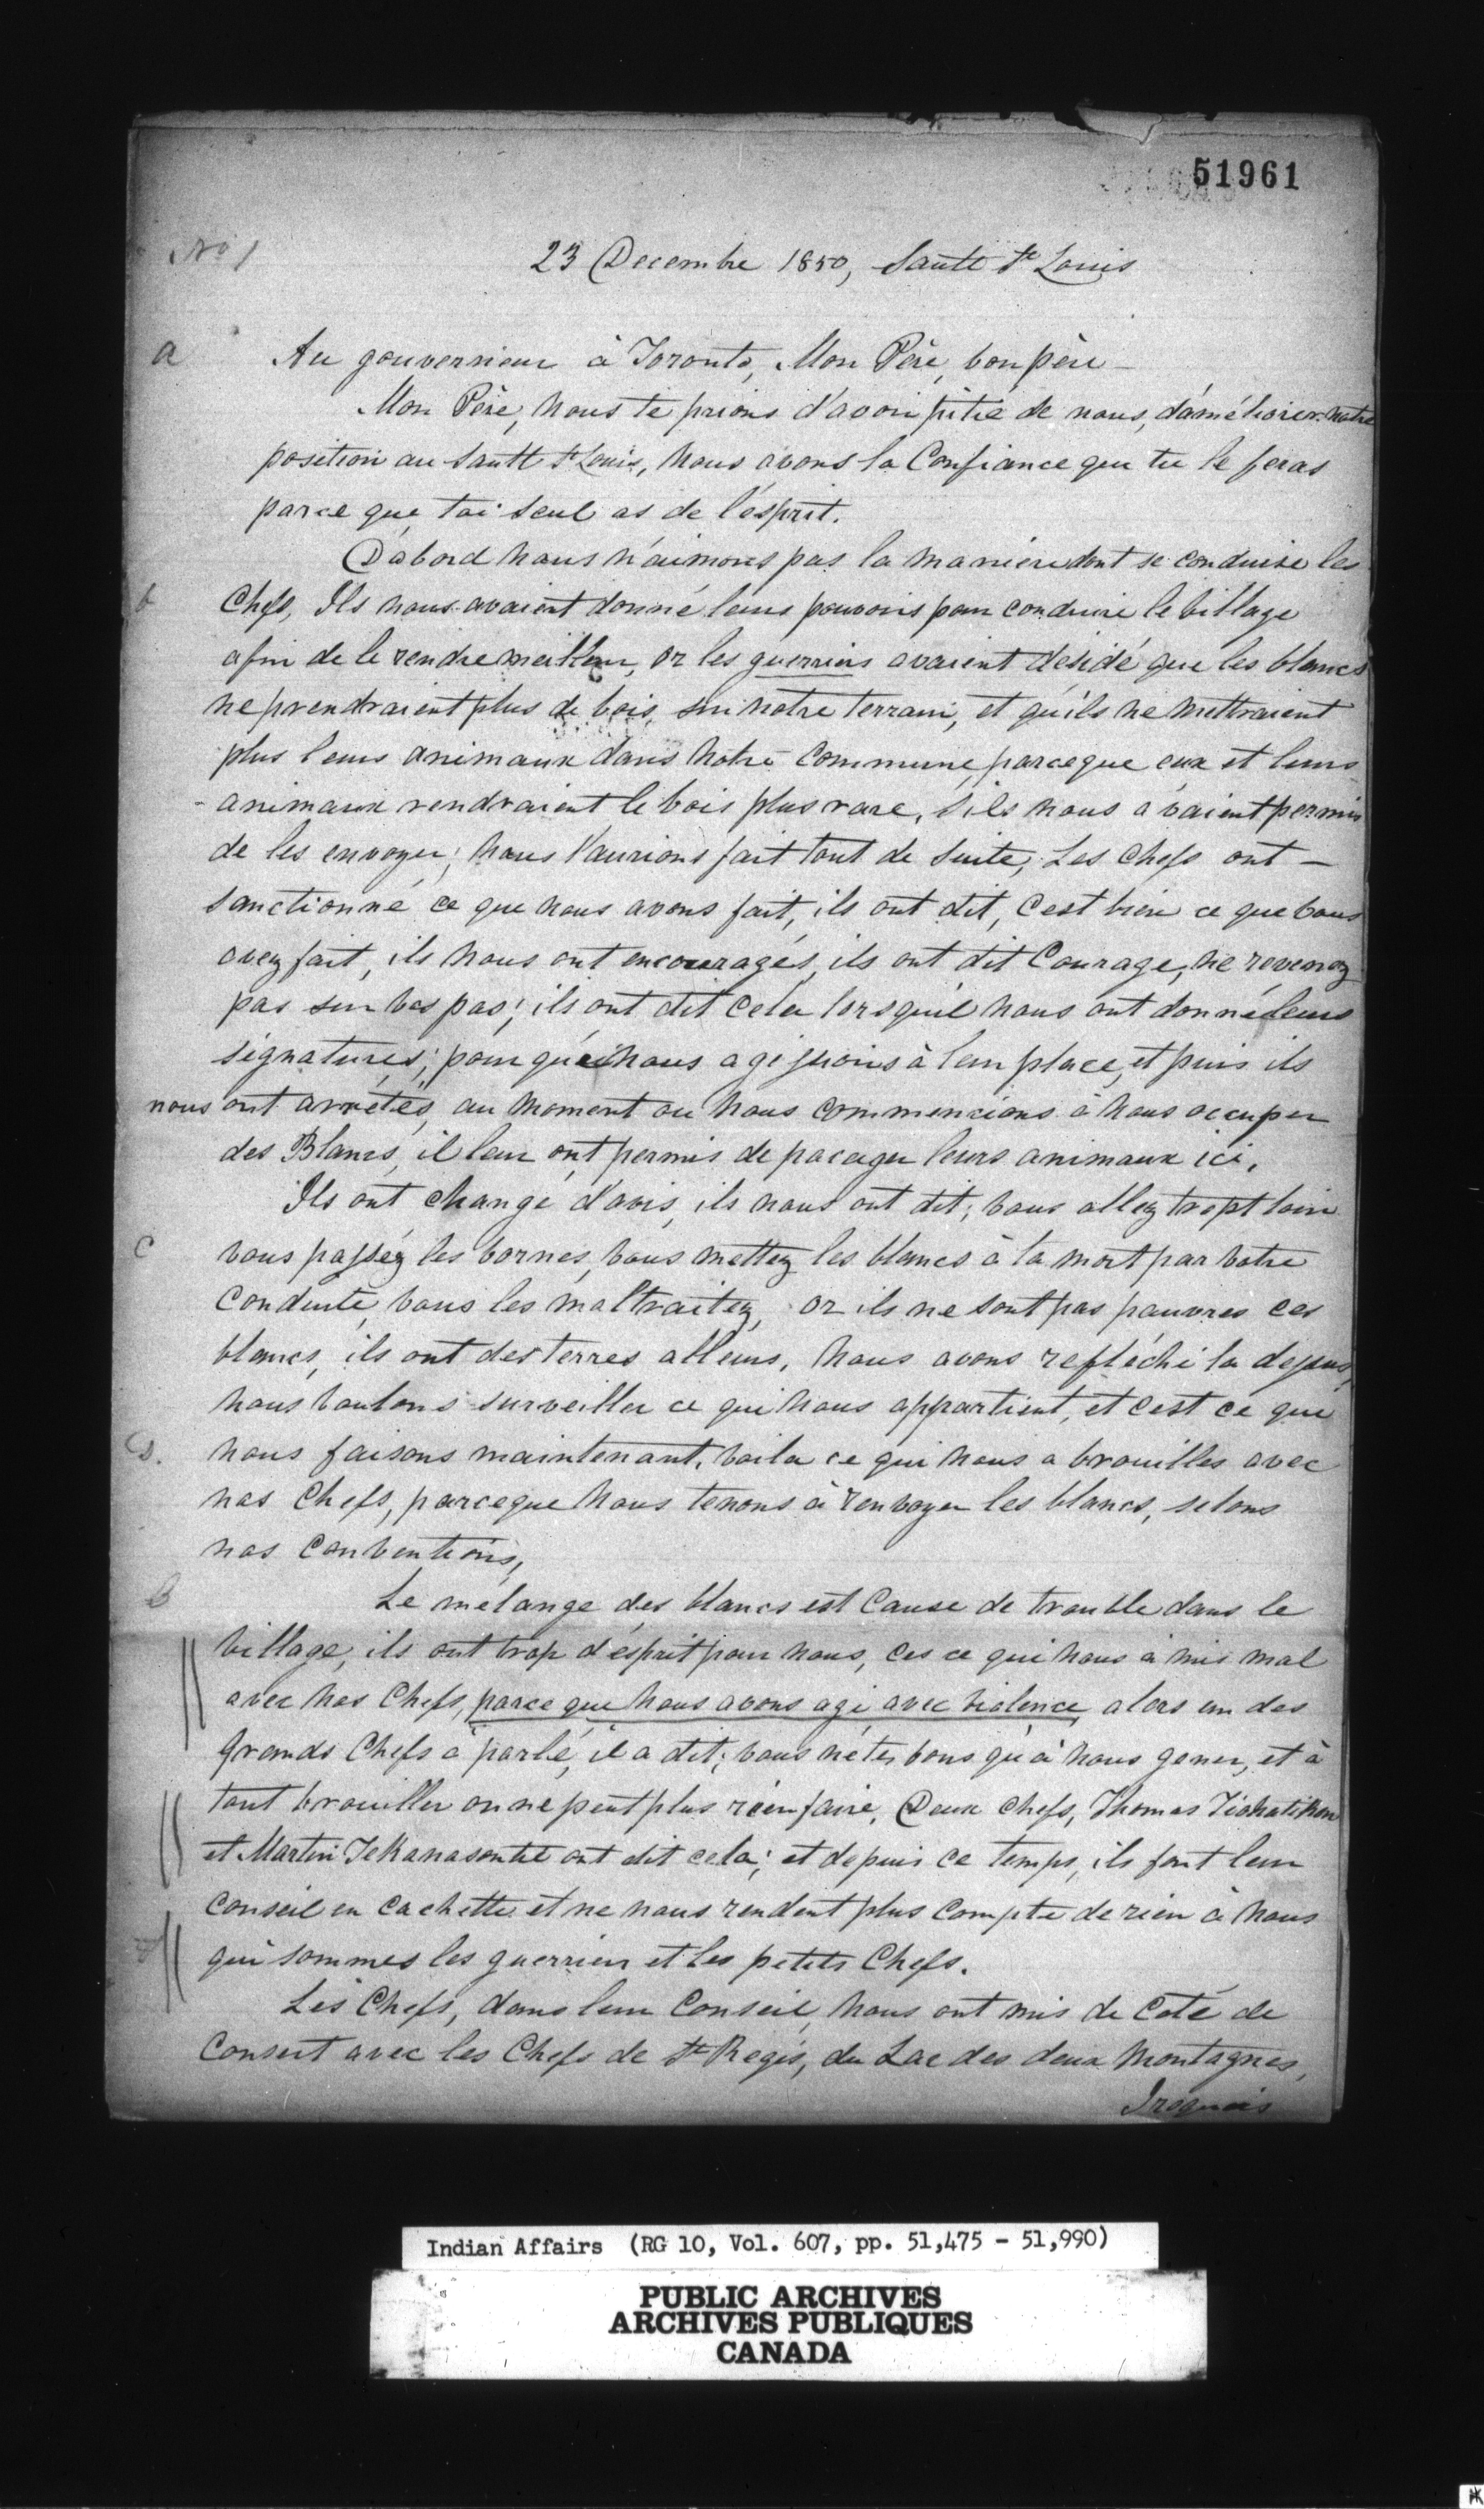 51961
No 1
23 Decembre 1850, Sault St Louis
a
Au gouverneur à Toronto, Mon Père, bon père —
Mon Père, nous te prions d'avoir pitié de nous, d'améliorer notre
position au Sault St Louis, nous avons la Confiance que tu le feras
parce que toi seul as de l'esprit.
D'abord nous n'aimons pas la manière dont se conduise les
b
Chefs, Ils nous avaient donné leurs pouvoirs pour conduire le village
afin de le rendre meilleur, or les guerriers avaient desidé que les blancs
ne prendraient plus de bois sur notre terrain, et qu'ils ne mettraient
plus leurs animaux dans notre commune, parceque eux et leurs
animaux rendraient le bois plus rare, s'ils nous avaient permis
de les envoyer; nous l'aurions fait tout de suite, Les Chefs ont —
sanctionné ce que nous avons fait, ils ont dit, c'est bien ce que vous
avez fait, ils nous ont encouragés, ils ont dit Courage, ne revenez
pas sur vos pas; ils ont dit cela lorsqu'il nous ont donné leurs
signatures; pour que nous agissions à leur place, et puis ils
nous ont arrétés, au moment ou nous commencions à nous occuper
des Blancs, il leur ont permis de pacager leurs animaux ici,
Ils ont changé d'avis, ils nous ont dit; vous allez tropt loin
c
vous passéz les bornes, vous mettez les blancs à la mort par votre
conduite, vous les maltraitez, or ils ne sont pas pauvres ces
blancs, ils ont des terres alleurs, nous avons refléchi la dessus,
nous voulons surveiller ce qui nous appartient, et c'est ce que
D.
nous faisons maintenant, voila ce qui nous a brouilles avec
nos Chefs, parceque nous tenons à renvoyer les blancs, selons
nos conventions,
Le mélange des blancs est Cause de trouble dans le
village, ils ont trop d'ésprit pour nous, ces ce qui nous à mis mal
avec nos Chefs, parce que nous avons agi avec violence, alors un des
Grands Chefs à parlé, il a dit; vous n'étes bons qu'à nous gener, et à
tout brouiller on ne peut plus rien faire, Deux Chefs, Thomas
et Martin Tekanasontie ont dit cela; et depuis ce temps, ils font leur
Conseil en cachette et ne nous rendent plus Compte de rien à nous
qui sommes les guerriers et les petits Chefs.
Les Chefs, dans leur Conseil, nous ont mis de Coté de
Consert avec les Chefs de St Regis, du Lac des deux Montagnes,
Iroquois
Indian Affairs (RG 10, Vol. 607, pp. 51,475 - 51,990)
PUBLIC ARCHIVES
ARCHIVES PUBLIQUES
CANADA